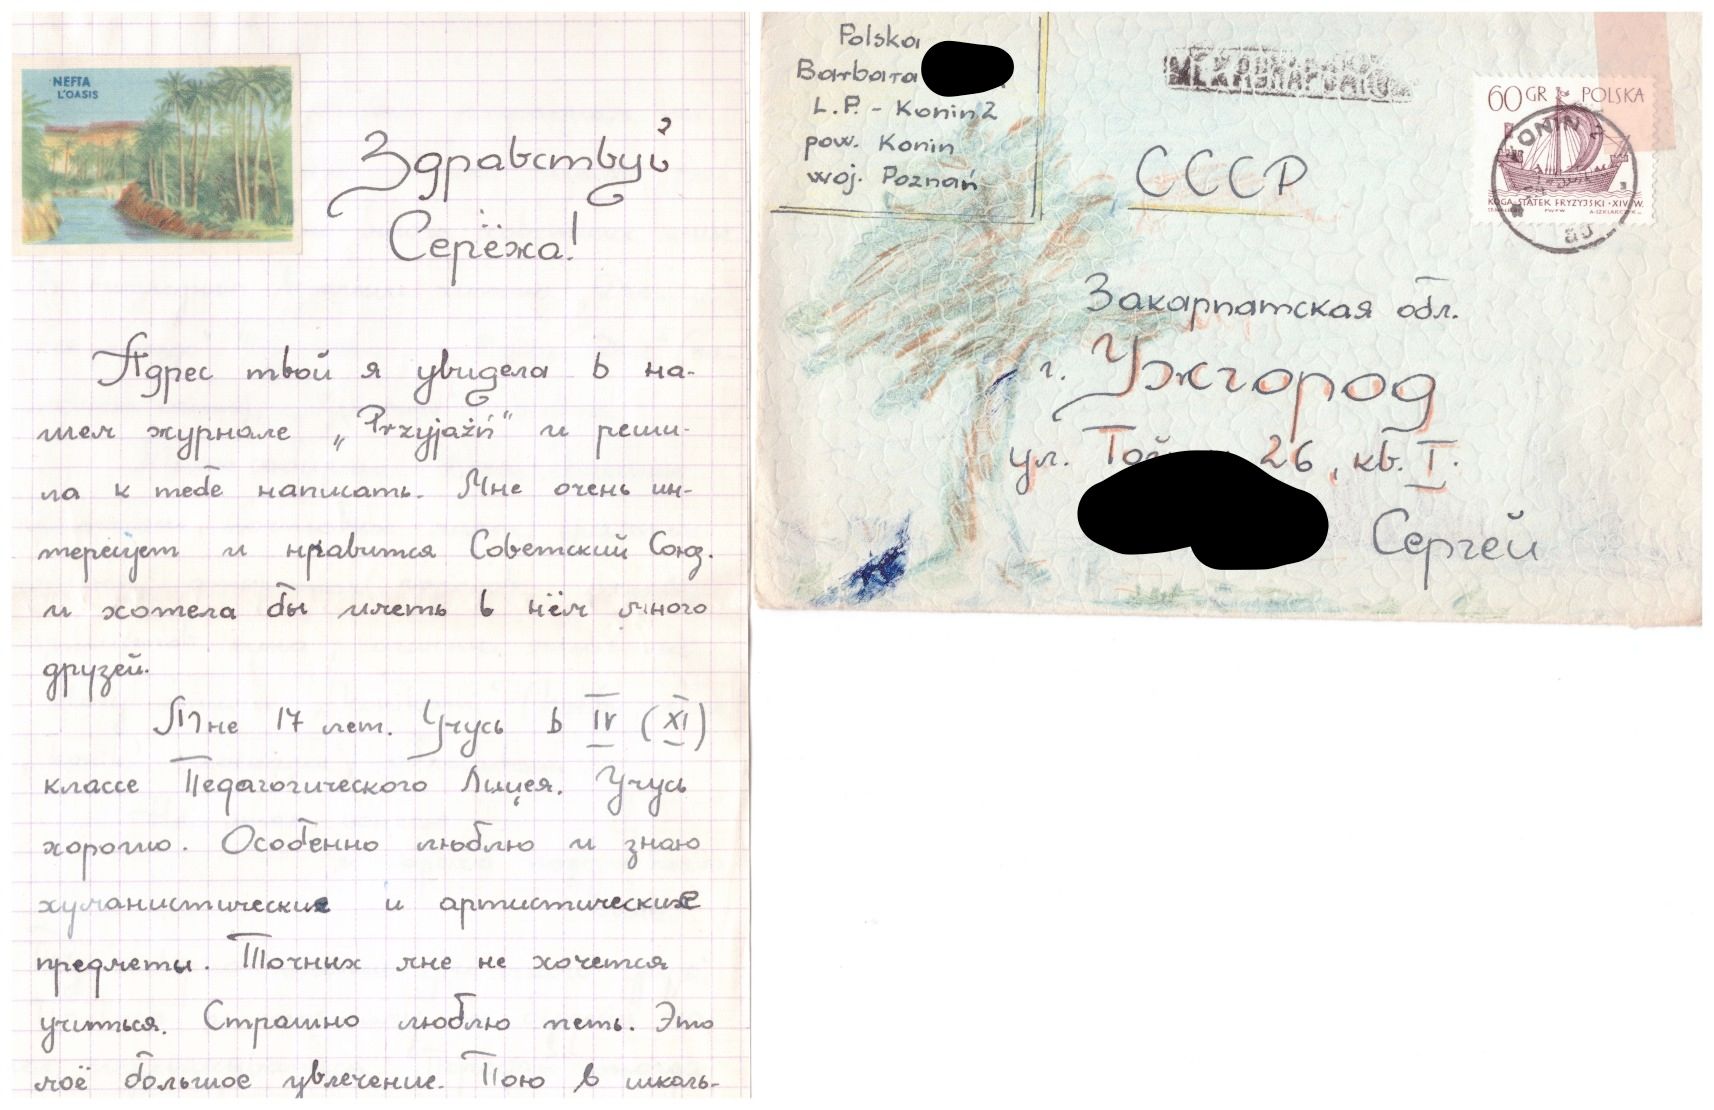 NEFTA
L'OASIS
Здравствуй
Серёжа!
Адрес твой я увидела в на-
шем журнале „Przyjaźń" и реши-
ла к тебе написать. Мне очень ин-
тересует и нравится Советский Союз.
и хотела бы иметь в нём много
друзей.
Мне 17 лет. Учусь в IV (XI)
классе Педагогического Лицея. Учусь
хорошо. Особенно люблю и знаю
хуманистические и артистические
предметы. Точних мне не хочется
учиться. Страшно люблю петь. Это
моё большое увлечение. Пою в школь-
Polska
Barbara
L.P. - Konin 2
pow. Konin
woj. Poznań
МЕЖДУНАРОДНОЕ
60 GR POLSKA
KONIN 2
KOGA, STATEK FRYZYJSKI · XIV W.
СССР
Закарпатская обл.
г. Ужгород
ул. 26, кв. I.
Сергей